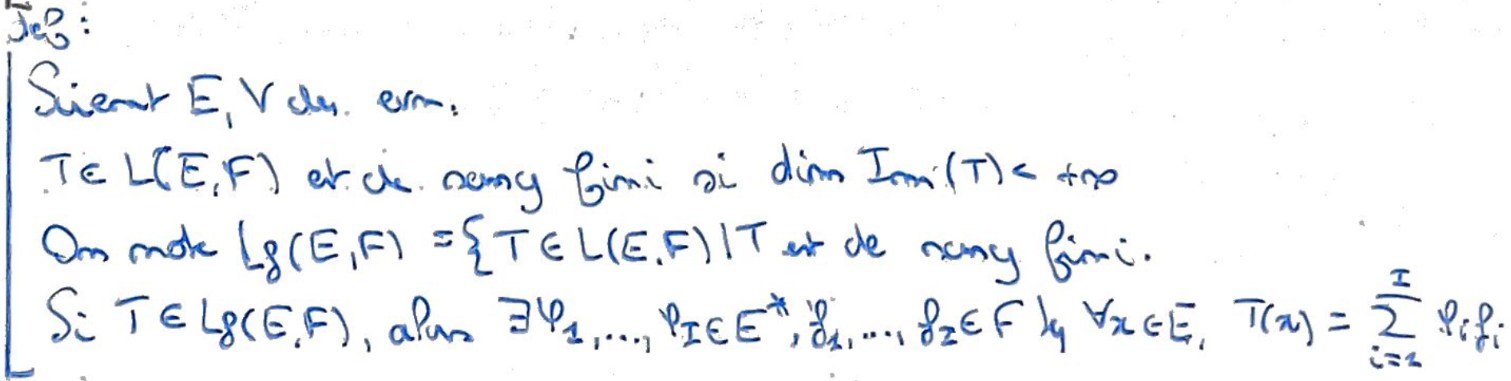 Def :
Soient E, V des evn.
T ∈ L(E,F) est de rang fini si dim Im(T) < +∞
On note Lf(E,F) = {T ∈ L(E,F) | T est de rang fini.
Si T ∈ Lf(E,F), alors ∃ φ₁,..., φ_I ∈ E*, f₁,..., f_I ∈ F tq ∀x ∈ E, T(x) = ∑_{i=1}^{I} φᵢfᵢ